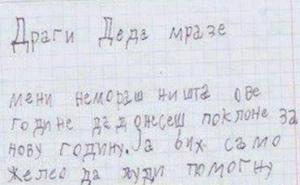 Драги Деда мразе
мени немораш ништа ове
године да донесеш поклоне за
нову годину. Ја бих само
желео да људи помогну